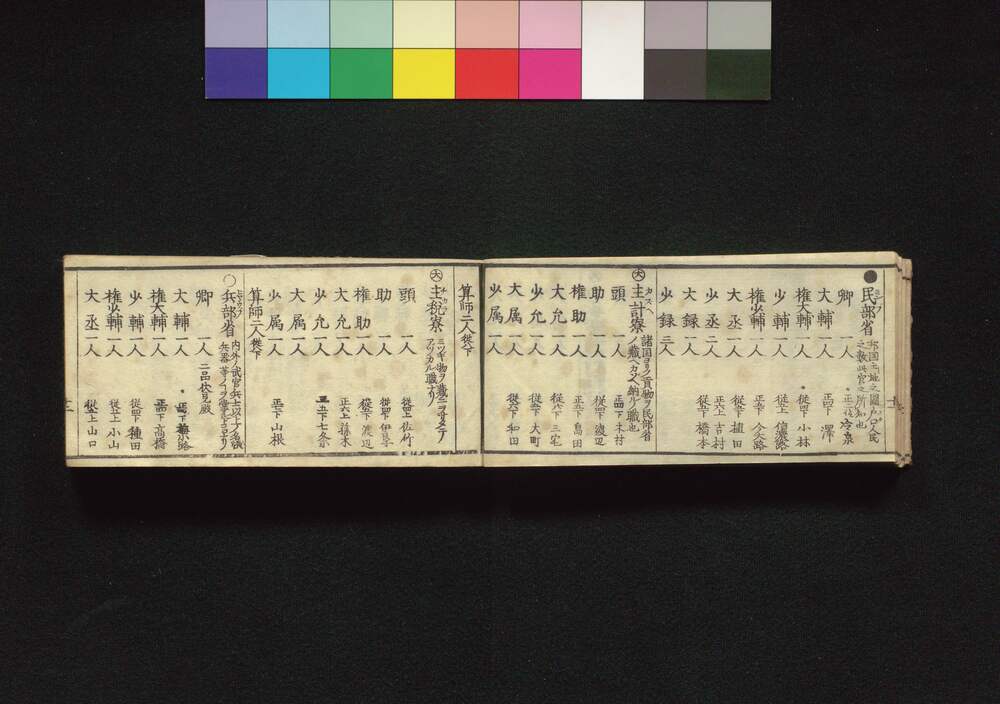 ●民部省
邦国土地之圖戸口人民
之数此官之所知也
卿 一人 正二位 冷泉
大輔 一人 正四下 澤
権大輔 一人 従四下 小林
少輔 一人 従上
権少輔 一人 正五下
大丞 一人 従五下 植田
少丞 二人 正六上 吉村
大録 一人 従五下 橋本
少録 三人
大 主計寮
諸国ヨリ貢物ヲ民部省
ノ蔵ヘカゾヘ納ル職也
頭 一人 正四下 木村
助 一人 従四下 渡辺
権助 一人 正五下 島田
大允 一人 従六下 三宅
少允 一人 従五下 大町
大属 一人 従六下 和田
少属 一人
算師二人 従八下
大 主税寮
ミツギ物ヲ蔵ニヲサメテ
アツカル職ナリ
頭 一人 従四上 佐竹
助 一人 従四下 伊良子
権助 一人 従五下 渡辺
大允 一人 正六上
少允 一人 正五下 七条
大属 一人
少属 一人 正六下 山根
算師二人 従八下
○兵部省
内外ノ武官兵士以下ノ名帳
兵器等ノコヲ
卿 一人 二品伏見殿
大輔 一人 正四下
権大輔 一人 正四下 高橋
少輔 一人 従四下 種田
権少輔 一人 従五上 小山
大丞 一人 従五上 山口